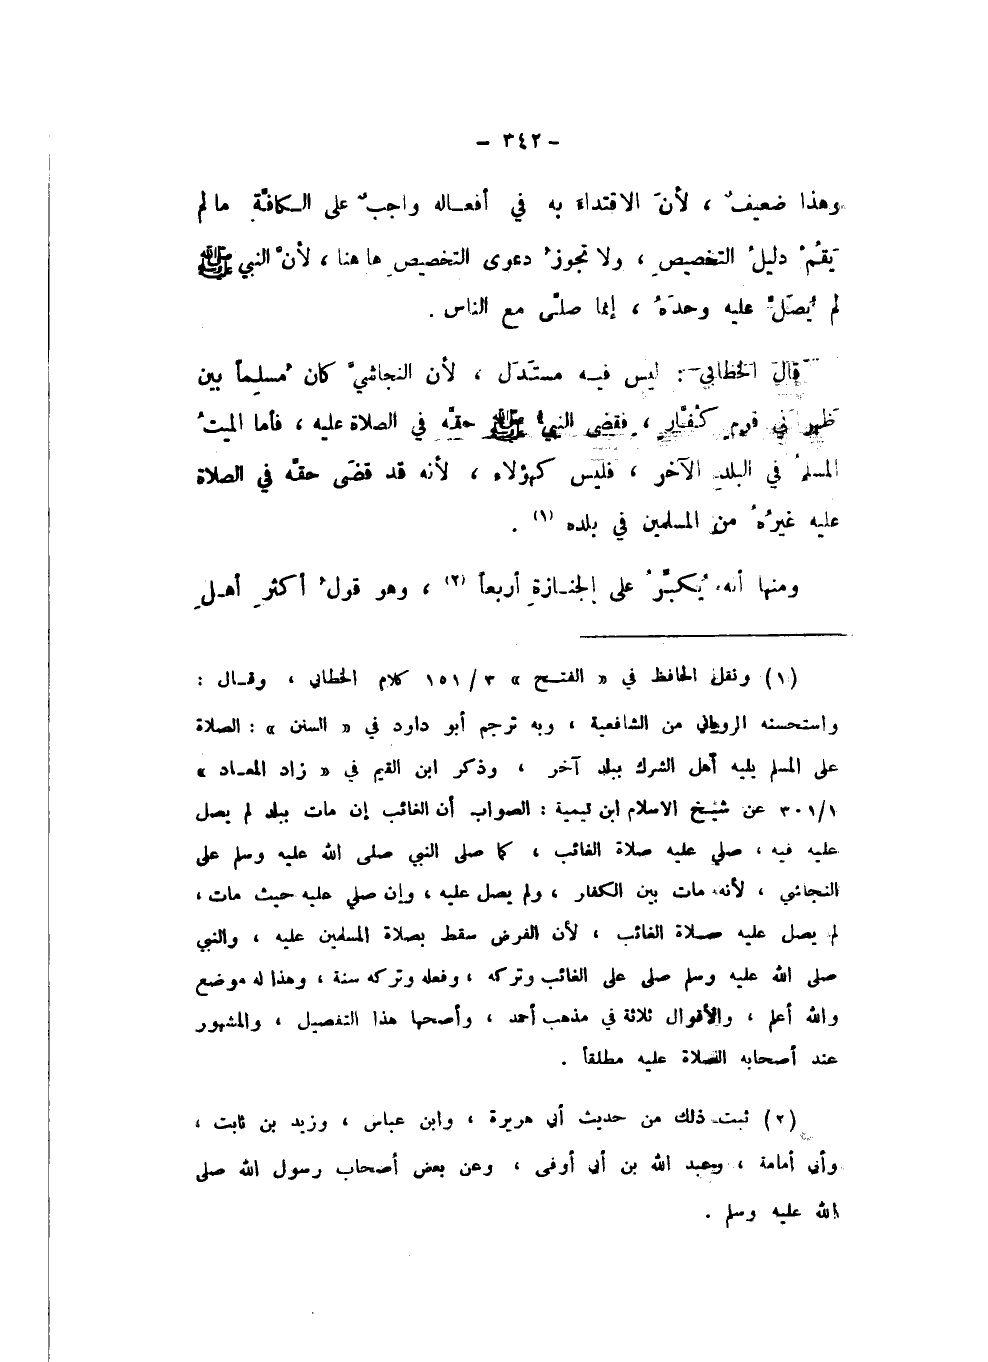 - ٣٤٢ -
وهذا ضعيفٌ ، لأنَّ الاقتداءَ به في أفعـاله واجبٌ على الـكافَّةِ ما لم
يَقُمْ دليلُ التخصيصِ ، ولا تجوزُ دعوى التخصيصِ ها هنا ، لأنَّ النبي ﷺ
لم يُصَلِّ عليه وحدَهُ ، إنما صلَّى مع الناس .
قالَ الخطابي : ليس فيـه مستَدَل ، لأن النجاشيَّ كان مُسلِماً بين
ظهرانَي قومٍ كُفَّارٍ ، فقضى النبيُّ ﷺ حقَّه في الصلاة عليه ، فأما الميتُ
المسلمُ في البلدِ الآخر ، فليس كهؤلاء ، لأنه قد قضَى حقَّه في الصلاة
عليه غيرُهُ من المسلمين في بلده (١) .
ومنها أنه يُكبَّرُ على الجنـازةِ أربعاً (٢) ، وهو قولُ أكثرِ أهـلِ
(١) ونقل الحافظ في « الفتـح » ٣ / ١٥١ كلام الخطابي ، وقـال :
واستحسنه الروياني من الشافعية ، وبه ترجم أبو داود في « السنن » : الصلاة
على المسلم يليه أهل الشرك ببلد آخر ، وذكر ابن القيم في « زاد المعـاد »
٣٠١/١ عن شيـخ الاسلام ابن تيمية : الصواب أن الغائب إن مات ببلد لم يصل
عليه فيه ، صلي عليه صلاة الغائب ، كما صلى النبي صلى الله عليه وسلم على
النجاشي ، لأنه مات بين الكفار ، ولم يصل عليه ، وإن صلي عليه حيث مات ،
لم يصل عليه صـلاة الغائب ، لأن الفرض سقط بصلاة المسلمين عليه ، والنبي
صلى الله عليه وسلم صلى على الغائب وتركه ، وفعله وتركه سنة ، وهذا له موضع
والله أعلم ، والأقوال ثلاثة في مذهب أحمد ، وأصحها هذا التفصيل ، والمشهور
عند أصحابه الصلاة عليه مطلقاً .
(٢) ثبت ذلك من حديث أبي هريرة ، وابن عباس ، وزيد بن ثابت ،
وأبي أمامة ، وعبد الله بن أبي أوفى ، وعن بعض أصحاب رسول الله صلى
الله عليه وسلم .